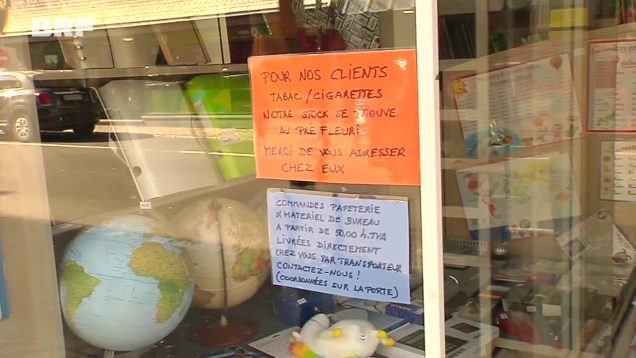 BRF
POUR NOS CLIENTS
TABAC/CIGARETTES
NOTRE STOCK SE TROUVE
AU PRÉ FLEURI
MERCI DE VOUS ADRESSER
CHEZ EUX
COMMANDES PAPETERIE
MATERIEL DE BUREAU
A PARTIR DE 50.00 h.TVA
LIVRÉES DIRECTEMENT
CHEZ VOUS PAR TRANSPORTEUR
CONTACTEZ-NOUS!
(COORDONNÉES SUR LA PORTE)